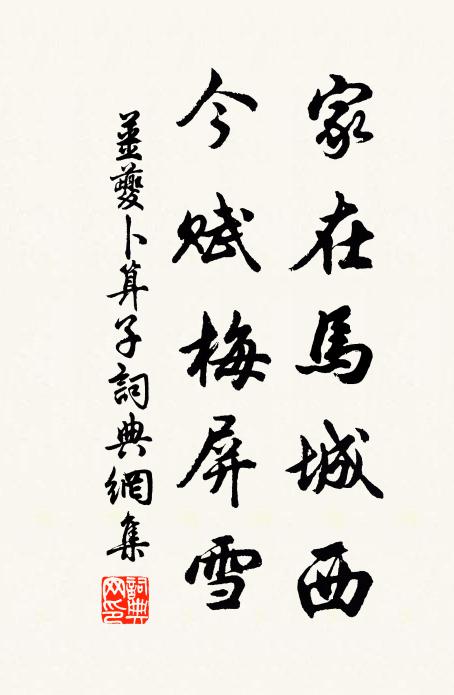 家在馬城西
今賦梅屏雪
姜夔卜算子詞典網集
詞典网印